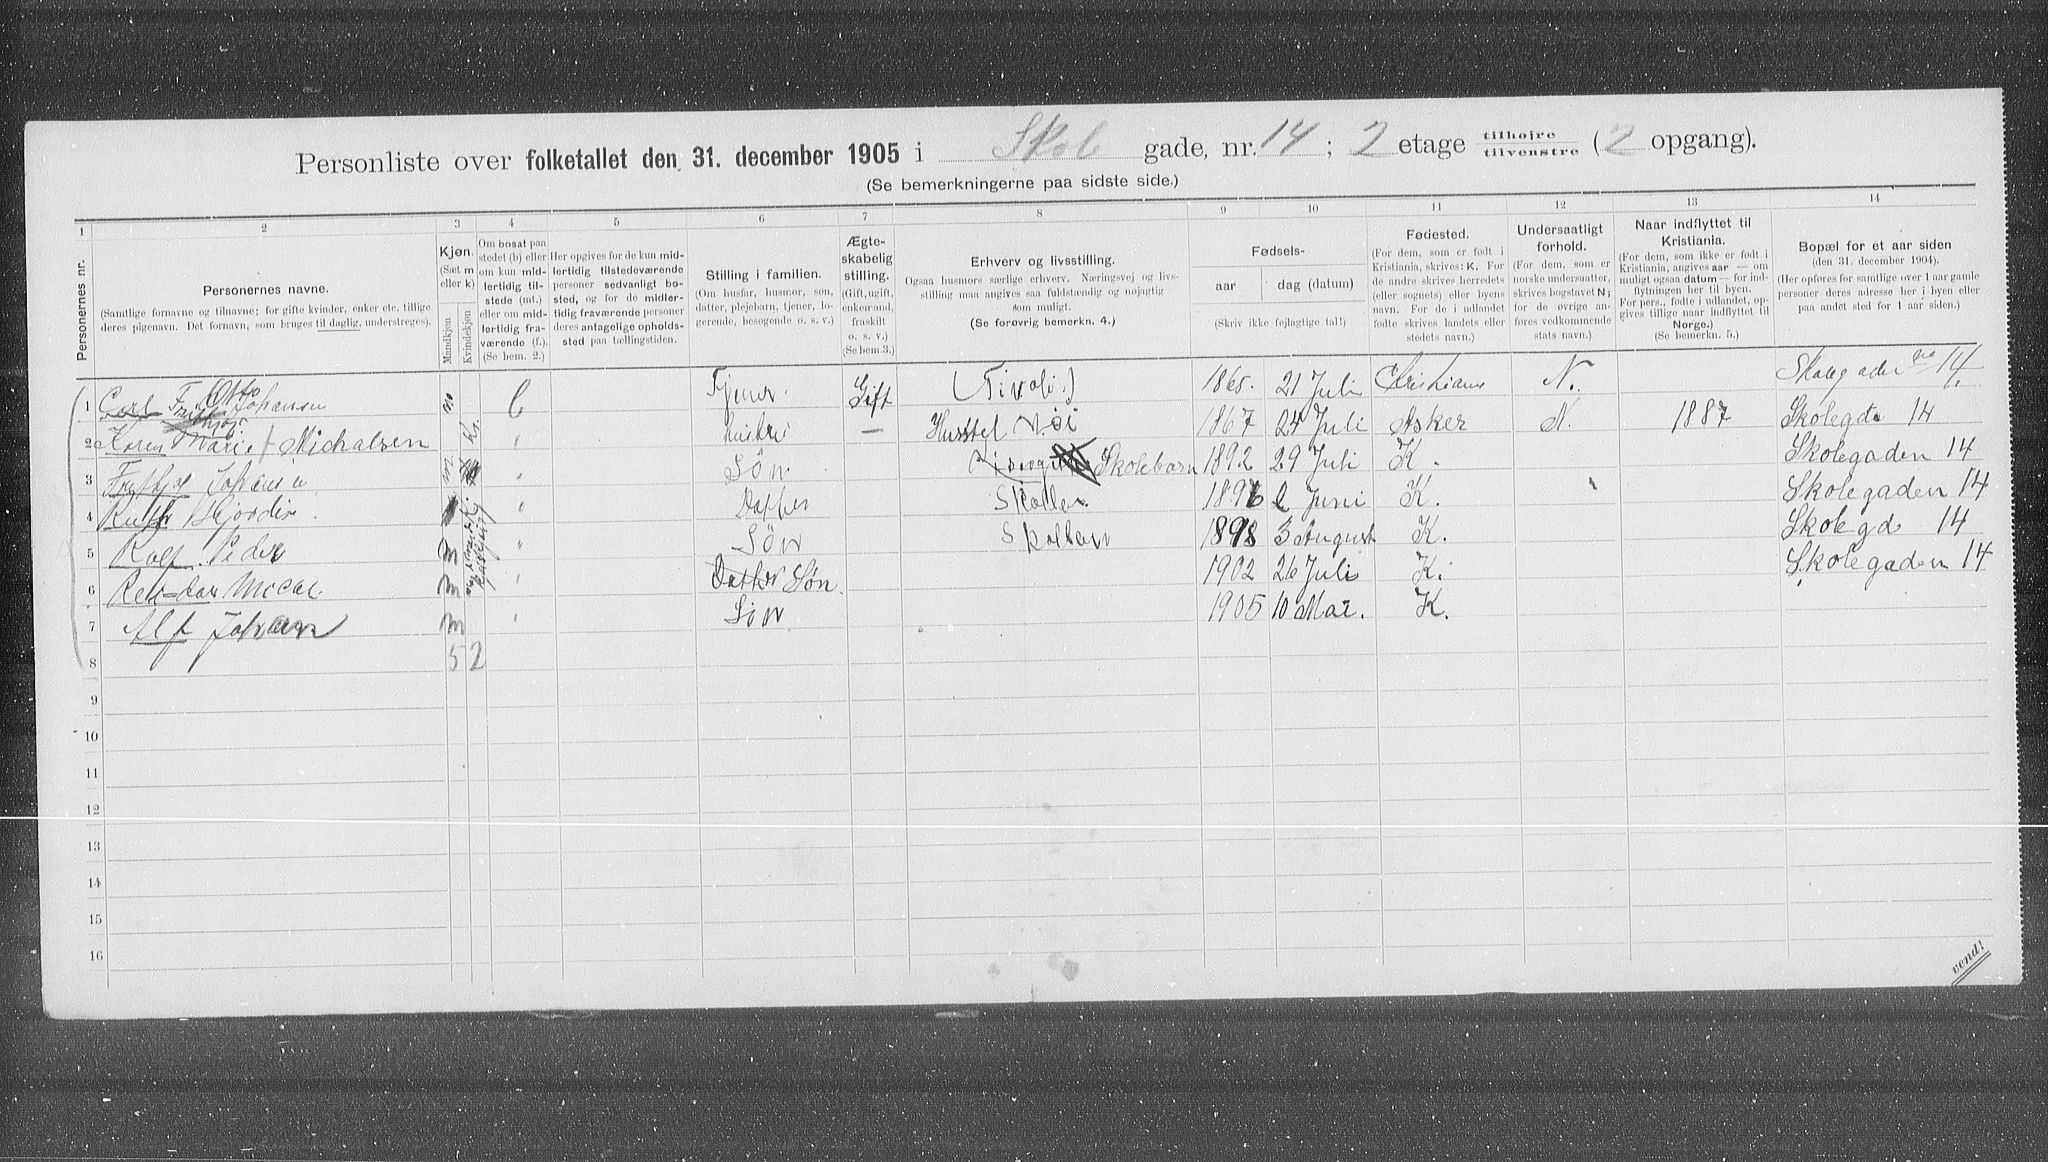 Personliste over folketallet den 31. december 1905 i Skole gade, nr. 14; 2 etage tilhøjre / tilvenstre (2 opgang).
(Se bemerkningerne paa sidste side.)
1 2 3 4 5 6 7 8 9 10 11 12 13 14
Personernes nr.
Personernes navne.
(Samtlige fornavne og tilnavne; for gifte kvinder, enker etc. tillige
deres pigenavn. Det fornavn, som bruges til daglig, understreges).
Kjøn.
(Sæt m
eller k)
Mandkjøn
Kvindekjøn
Om bosat paa
stedet (b) eller
om kun mid-
lertidig til-
stede (mt.)
eller om mid-
lertidig fra-
værende (f.).
(Se bem. 2.)
Her opgives for de kun mid-
lertidig tilstedeværende
personer sedvanligt bo-
sted, og for de midler-
tidig fraværende personer
deres antagelige opholds-
sted paa tællingstiden.
Stilling i familien.
(Om husfar, husmor, søn,
datter, plejebarn, tjener, lo-
gerende, besøgende o. s. v.)
Ægte-
skabelig
stilling.
(Gift, ugift,
enkemand,
fraskilt
o. s. v.)
(Se bem. 3.)
Erhverv og livsstilling.
Ogsaa husmors særlige erhverv. Næringsvej og livs-
stilling maa angives saa fuldstændig og nøjagtig
som muligt.
(Se forøvrig bemerkn. 4.)
Fødsels-
aar
dag (datum)
(Skriv ikke fejlagtige tal!)
Fødested.
(For dem, som er født i
Kristiania, skrives: K. For
de andre skrives herredets
(eller sognets) eller byens
navn. For de i udlandet
fødte skrives landets eller
stedets navn.)
Undersaatligt
forhold.
(For dem, som er
norske undersaatter,
skrives bogstavet N;
for de øvrige an-
føres vedkommende
stats navn.)
Naar indflyttet til
Kristiania.
(For dem, som ikke er født i
Kristiania, angives aar — om
muligt ogsaa datum — for ind-
flytningen her til byen.
For pers., fødte i udlandet, op-
gives tillige naar indflyttet til
Norge.)
(Se bemerkn. 5.)
Bopæl for et aar siden
(den 31. december 1904).
(Her opføres for samtlige over 1 aar gamle
personer deres adresse her i byen eller
paa andet sted for 1 aar siden.)
1 Carl Otto Johansen m b Gift (Tivoli) 1865. 21 Juli Cristiania N. no 14.
2 Karen Marie f Michalsen " — 1867 24 Juli Asker N. 1887 Skolegd. 14
3 Johansen m " Søn Skolebarn 1892 29 Juli K. Skolegaden 14
4 Ruth Hjordis. " 2 Juni K. Skolegaden 14
5 Rolf Peder m " Søn 1898 3 August K. Skolegd 14
6 m " Søn. 1902 26 Juli K. Skolegaden 14
7 Alf Johan m " Søn 1905 10 Mai. K.
8 5 2
9
10
11
12
13
14
15
16
vend!